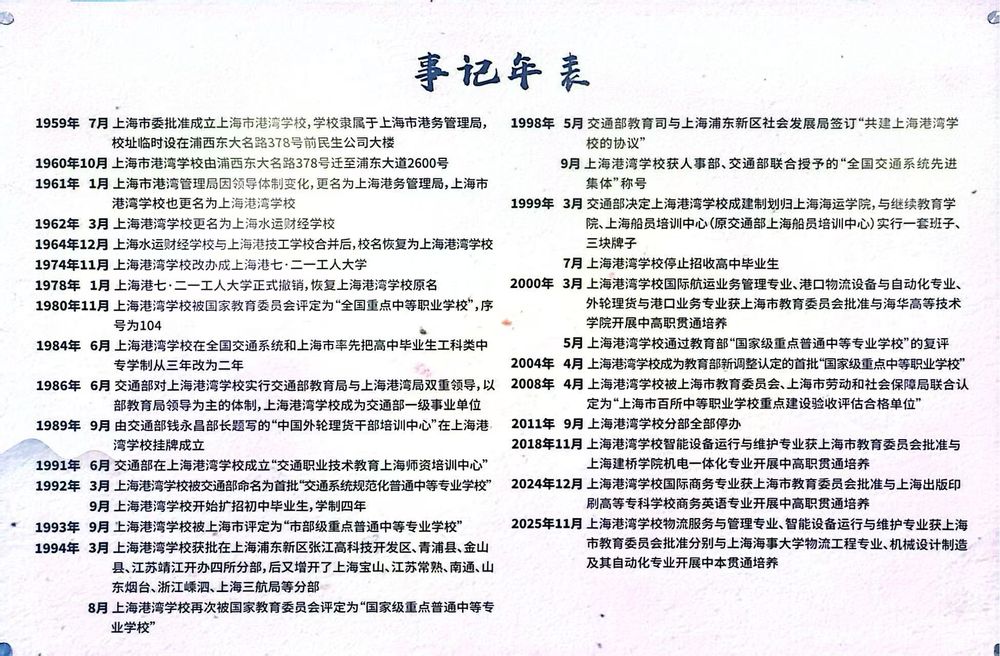 事记年表
1959年 7月 上海市委批准成立上海市港湾学校，学校隶属于上海市港务管理局，
校址临时设在浦西东大名路378号前民生公司大楼
1960年10月 上海市港湾学校由浦西东大名路378号迁至浦东大道2600号
1961年 1月 上海市港湾管理局因领导体制变化，更名为上海港务管理局，上海市
港湾学校也更名为上海港湾学校
1962年 3月 上海港湾学校更名为上海水运财经学校
1964年12月 上海水运财经学校与上海港技工学校合并后，校名恢复为上海港湾学校
1974年11月 上海港湾学校改办成上海港七·二一工人大学
1978年 1月 上海港七·二一工人大学正式撤销，恢复上海港湾学校原名
1980年11月 上海港湾学校被国家教育委员会评定为“全国重点中等职业学校”，序
号为104
1984年 6月 上海港湾学校在全国交通系统和上海市率先把高中毕业生工科类中
专学制从三年改为二年
1986年 6月 交通部对上海港湾学校实行交通部教育局与上海港湾局双重领导，以
部教育局领导为主的体制，上海港湾学校成为交通部一级事业单位
1989年 9月 由交通部钱永昌部长题写的“中国外轮理货干部培训中心”在上海港
湾学校挂牌成立
1991年 6月 交通部在上海港湾学校成立“交通职业技术教育上海师资培训中心”
1992年 3月 上海港湾学校被交通部命名为首批“交通系统规范化普通中等专业学校”
9月 上海港湾学校开始扩招初中毕业生，学制四年
1993年 9月 上海港湾学校被上海市评定为“市部级重点普通中等专业学校”
1994年 3月 上海港湾学校获批在上海浦东新区张江高科技开发区、青浦县、金山
县、江苏靖江开办四所分部，后又增开了上海宝山、江苏常熟、南通、山
东烟台、浙江嵊泗、上海三航局等分部
8月 上海港湾学校再次被国家教育委员会评定为“国家级重点普通中等专
业学校”
1998年 5月 交通部教育司与上海浦东新区社会发展局签订“共建上海港湾学
校的协议”
9月 上海港湾学校获人事部、交通部联合授予的“全国交通系统先进
集体”称号
1999年 3月 交通部决定上海港湾学校成建制划归上海海运学院，与继续教育学
院、上海船员培训中心（原交通部上海船员培训中心）实行一套班子、
三块牌子
7月 上海港湾学校停止招收高中毕业生
2000年 3月 上海港湾学校国际航运业务管理专业、港口物流设备与自动化专业、
外轮理货与港口业务专业获上海市教育委员会批准与海华高等技术
学院开展中高职贯通培养
5月 上海港湾学校通过教育部“国家级重点普通中等专业学校”的复评
2004年 4月 上海港湾学校成为教育部新调整认定的首批“国家级重点中等职业学校”
2008年 4月 上海港湾学校被上海市教育委员会、上海市劳动和社会保障局联合认
定为“上海市百所中等职业学校重点建设验收评估合格单位”
2011年 9月 上海港湾学校分部全部停办
2018年11月 上海港湾学校智能设备运行与维护专业获上海市教育委员会批准与
上海建桥学院机电一体化专业开展中高职贯通培养
2024年12月 上海港湾学校国际商务专业获上海市教育委员会批准与上海出版印
刷高等专科学校商务英语专业开展中高职贯通培养
2025年11月 上海港湾学校物流服务与管理专业、智能设备运行与维护专业获上海
市教育委员会批准分别与上海海事大学物流工程专业、机械设计制造
及其自动化专业开展中本贯通培养